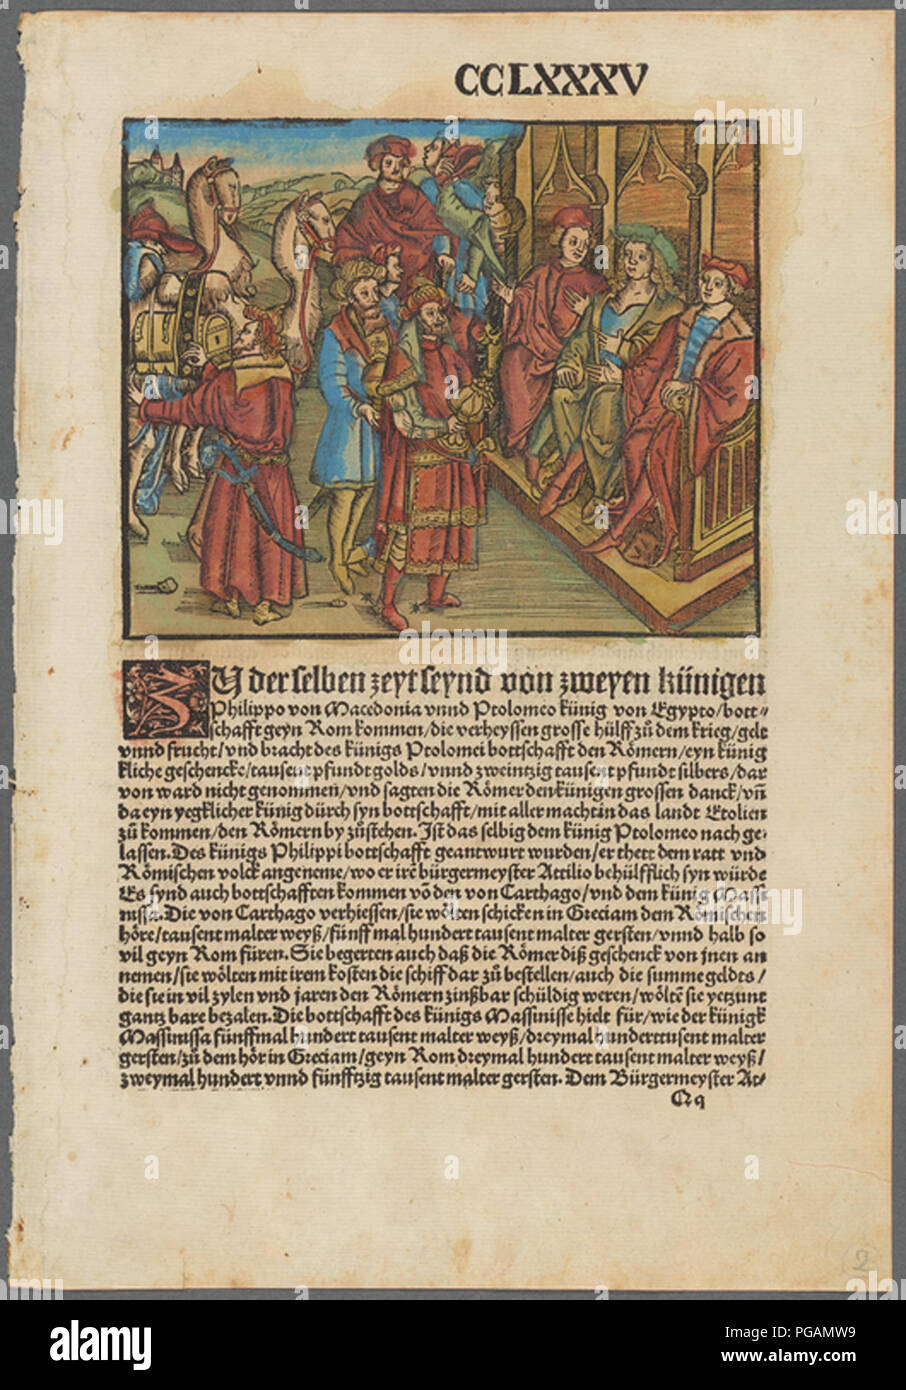 CCLXXXV
ZU der selben zeyt seynd von zweyen künigen
Philippo von Macedonia vnnd Ptolomeo künig von Egypto/bott⸗
schafft geyn Rom kommen/die verheyssen grosse hülff zů dem krieg/gelt
vnnd frucht/vnd bracht des künigs Ptolomei bottschafft den Römern/eyn künig
kliche geschencke/tausent pfundt golds/vnnd zweintzig tausent pfundt silbers/dar
von ward nicht genommen/vnd sagten die Römer den künigen grossen danck/vñ
da eyn yegklicher künig dürch syn bottschafft/mit aller macht in das landt Etolien
zů kommen/den Römern by zůstehen. Ist das selbig dem künig Ptolomeo nach ge⸗
lassen. Des künigs Philippi bottschafft geantwurt wurden/er thett dem ratt vnd
Römischen volck angeneme/wo er irē bürgermeyster Attilio behülfflich syn würde
Es synd auch bottschafften kommen vō den von Carthago/vnd dem künig Massi
nissa. Die von Carthago verhiessen/sie wölten schicken in Greciam dem Römischen
höre/tausent malter weyß/fünff mal hundert tausent malter gersten/vnnd halb so
vil geyn Rom füren. Sie begerten auch daß die Römer diß geschenck von jnen an
nemen/sie wölten mit irem kosten die schiff dar zů bestellen/auch die summe geldts/
die sie in vil zylen vnd jaren den Römern zinßbar schüldig weren/wöltē sie yetzunt
gantz bare bezalen. Die bottschafft des künigs Massinisse hielt für/wie der künigk
Massinissa fünffmal hundert tausent malter weyß/dreymal hunderttusent malter
gersten/zů dem hör in Greciam/geyn Rom dreymal hundert tausent malter weyß/
zweymal hundert vnnd fünfftzig tausent malter gersten. Dem Bürgermeyster At⸗
Qq
2
alamy
Image ID: PGAMW9
www.alamy.com